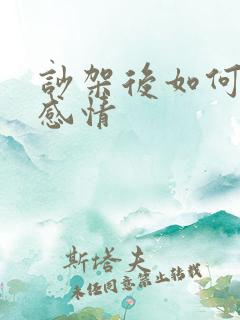 訡架後如何
感情
斯塔夫
未径同意禁止转载